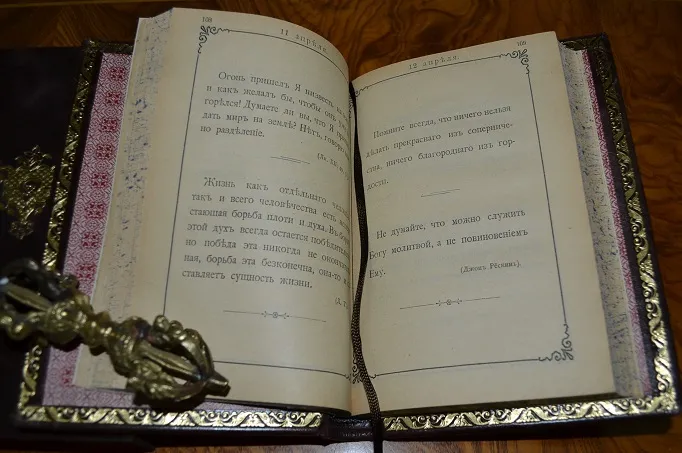 108
11 апрѣля.
Огонь пришелъ Я низвесть на
и какъ желалъ бы, чтобы онъ
горѣлся! Думаете ли вы, что Я
дать миръ на землѣ? Нѣтъ, говорю
но раздѣленіе.
Жизнь какъ отдѣльнаго
такъ и всего человѣчества есть
стающая борьба плоти и духа. Въ
этой духъ всегда остается побѣдителемъ
но победа эта никогда не
ная, борьба эта безконечна, она-то и
ставляетъ сущность жизни.
109
12 апрѣля.
Помните всегда, что ничего нельзя
дѣлать прекраснаго изъ соперниче-
ства, ничего благороднаго изъ гор-
дости.
Не думайте, что можно служить
Богу молитвой, а не повиновеніемъ
Ему.
(Джонъ Рёскинъ).